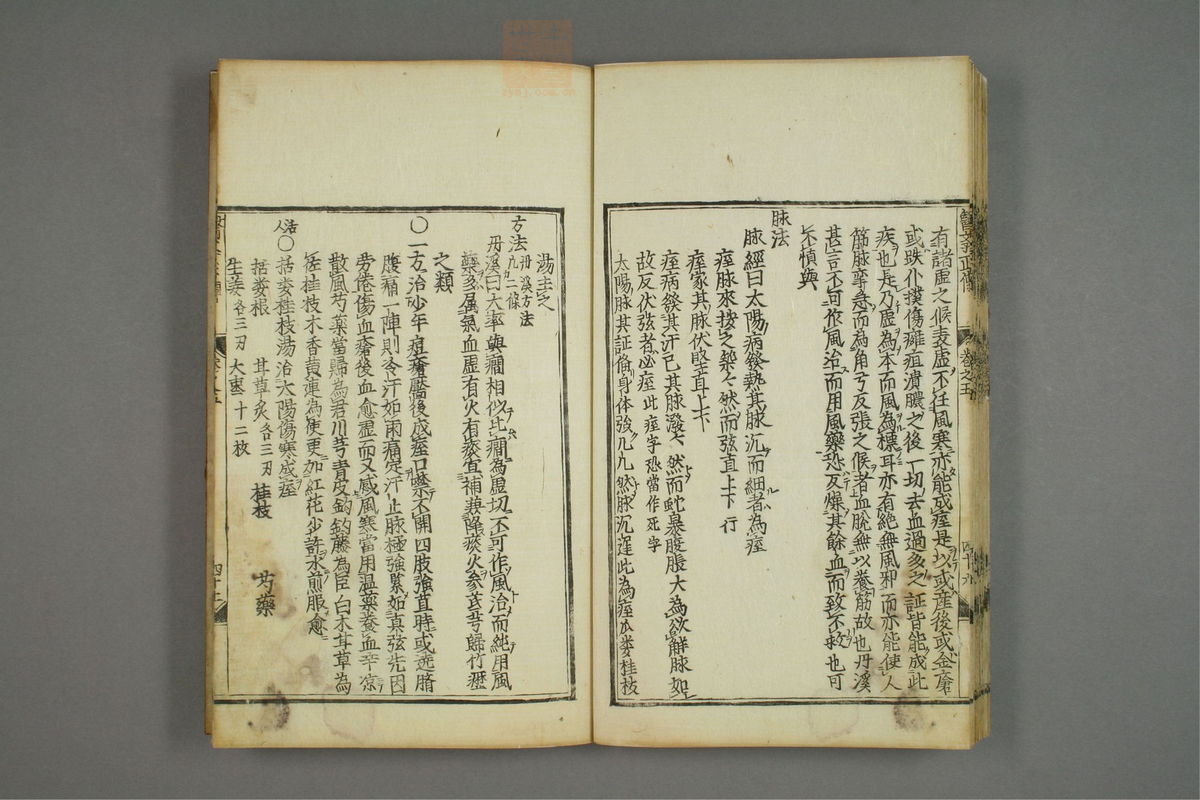 有諸虛之候表虛不任風寒亦能成痓是以或産後或金瘡
或跌仆撲傷癰疽潰膿之後一切去血過多之証皆能成此
疾也是乃虛為本而風為標耳亦有絶無風邪而亦能使人
筋脉攣急而為角弓反張之候者血脫無以養筋故也丹溪
甚言不可作風治而用風藥恐反燥其餘血而致不救也可
不慎與
脉法
脉經曰太陽病發熱其脉沉而細者為痓
痓脉來按之築々然而弦直上下行
痓家其脉伏堅直上下
痓病發其汗已其脉潑々然而蛇暴腹脹大為欲解脉如
故反伏弦者必痓此痓字恐當作死字
太陽脉其証俻身体強几几然脉沉遲此為痓瓜蔞桂枝
湯主之
方法丹溪方法
凡二條
丹溪曰大率與癇相似比癇為虛切不可作風治而純用風
藥多屬氣血虛有火有痰宜補兼降痰火參芪芎歸竹瀝
之類
〇一方治少年痘瘡靨後成痓口禁不開四肢強直時或遶臍
腹痛一陣則冷汗如雨痛定汗止脉極強緊如真弦先因
勞倦傷血瘡後血愈虛而又感風寒當用温藥養血辛凉
散風芍藥當歸為君川芎青皮鈎鈎藤為臣白木甘草為
佐桂枝木香黄連為使更加紅花少許水煎服愈
活人〇括蔞桂枝湯治太陽傷寒成痓
括蔞根 甘草炙各三刃 桂枝 芍藥
生姜各三刃 大棗十二枚